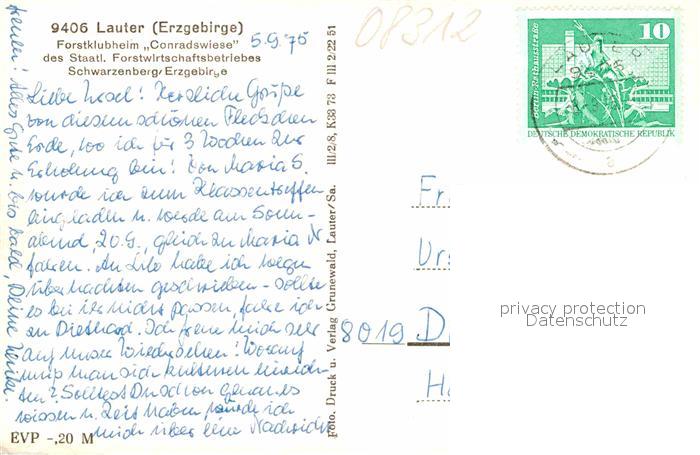 9406 Lauter (Erzgebirge)
Forstklubheim „Conradswiese"
des Staatl. Forstwirtschaftsbetriebes
Schwarzenberg/Erzgebirge
5.9.75
08312
Liebe Ursel! Herzliche Grüße
von diesem schönen Fleckchen
Erde, wo ich für 3 Wochen zur
Erholung bin! Von Maria S.
wurde ich zum Klassentreffen
eingeladen u. werde am Sonn-
abend, 20.9., gleich zu Maria N
fahren. An Lilo habe ich wegen
Übernachten geschrieben - sollte
es bei ihr nicht passen, fahre ich
zu Diethard. Ich freue mich sehr
auf unser Wiedersehen! Worauf
muß man sich kulturell einrich-
ten? Solltest Du schon genaues
wissen u. Zeit haben, würde ich
mich über eine Nachricht
freuen! Alles Gute u. bis bald, Deine
EVP -,20 M
Foto, Druck u. Verlag Grunewald, Lauter/Sa. III/2/8, K33 73 F III 2 22 51
10
Berlin-Rathausstraße
DEUTSCHE DEMOKRATISCHE REPUBLIK
LAUTER
Fr
Urs
8019 D
H
privacy protection
Datenschutz